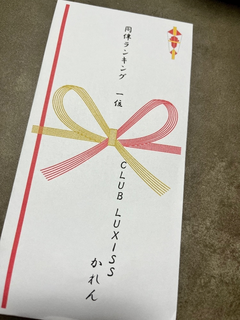 同伴ランキング 一位
CLUB LUXISS
かれん